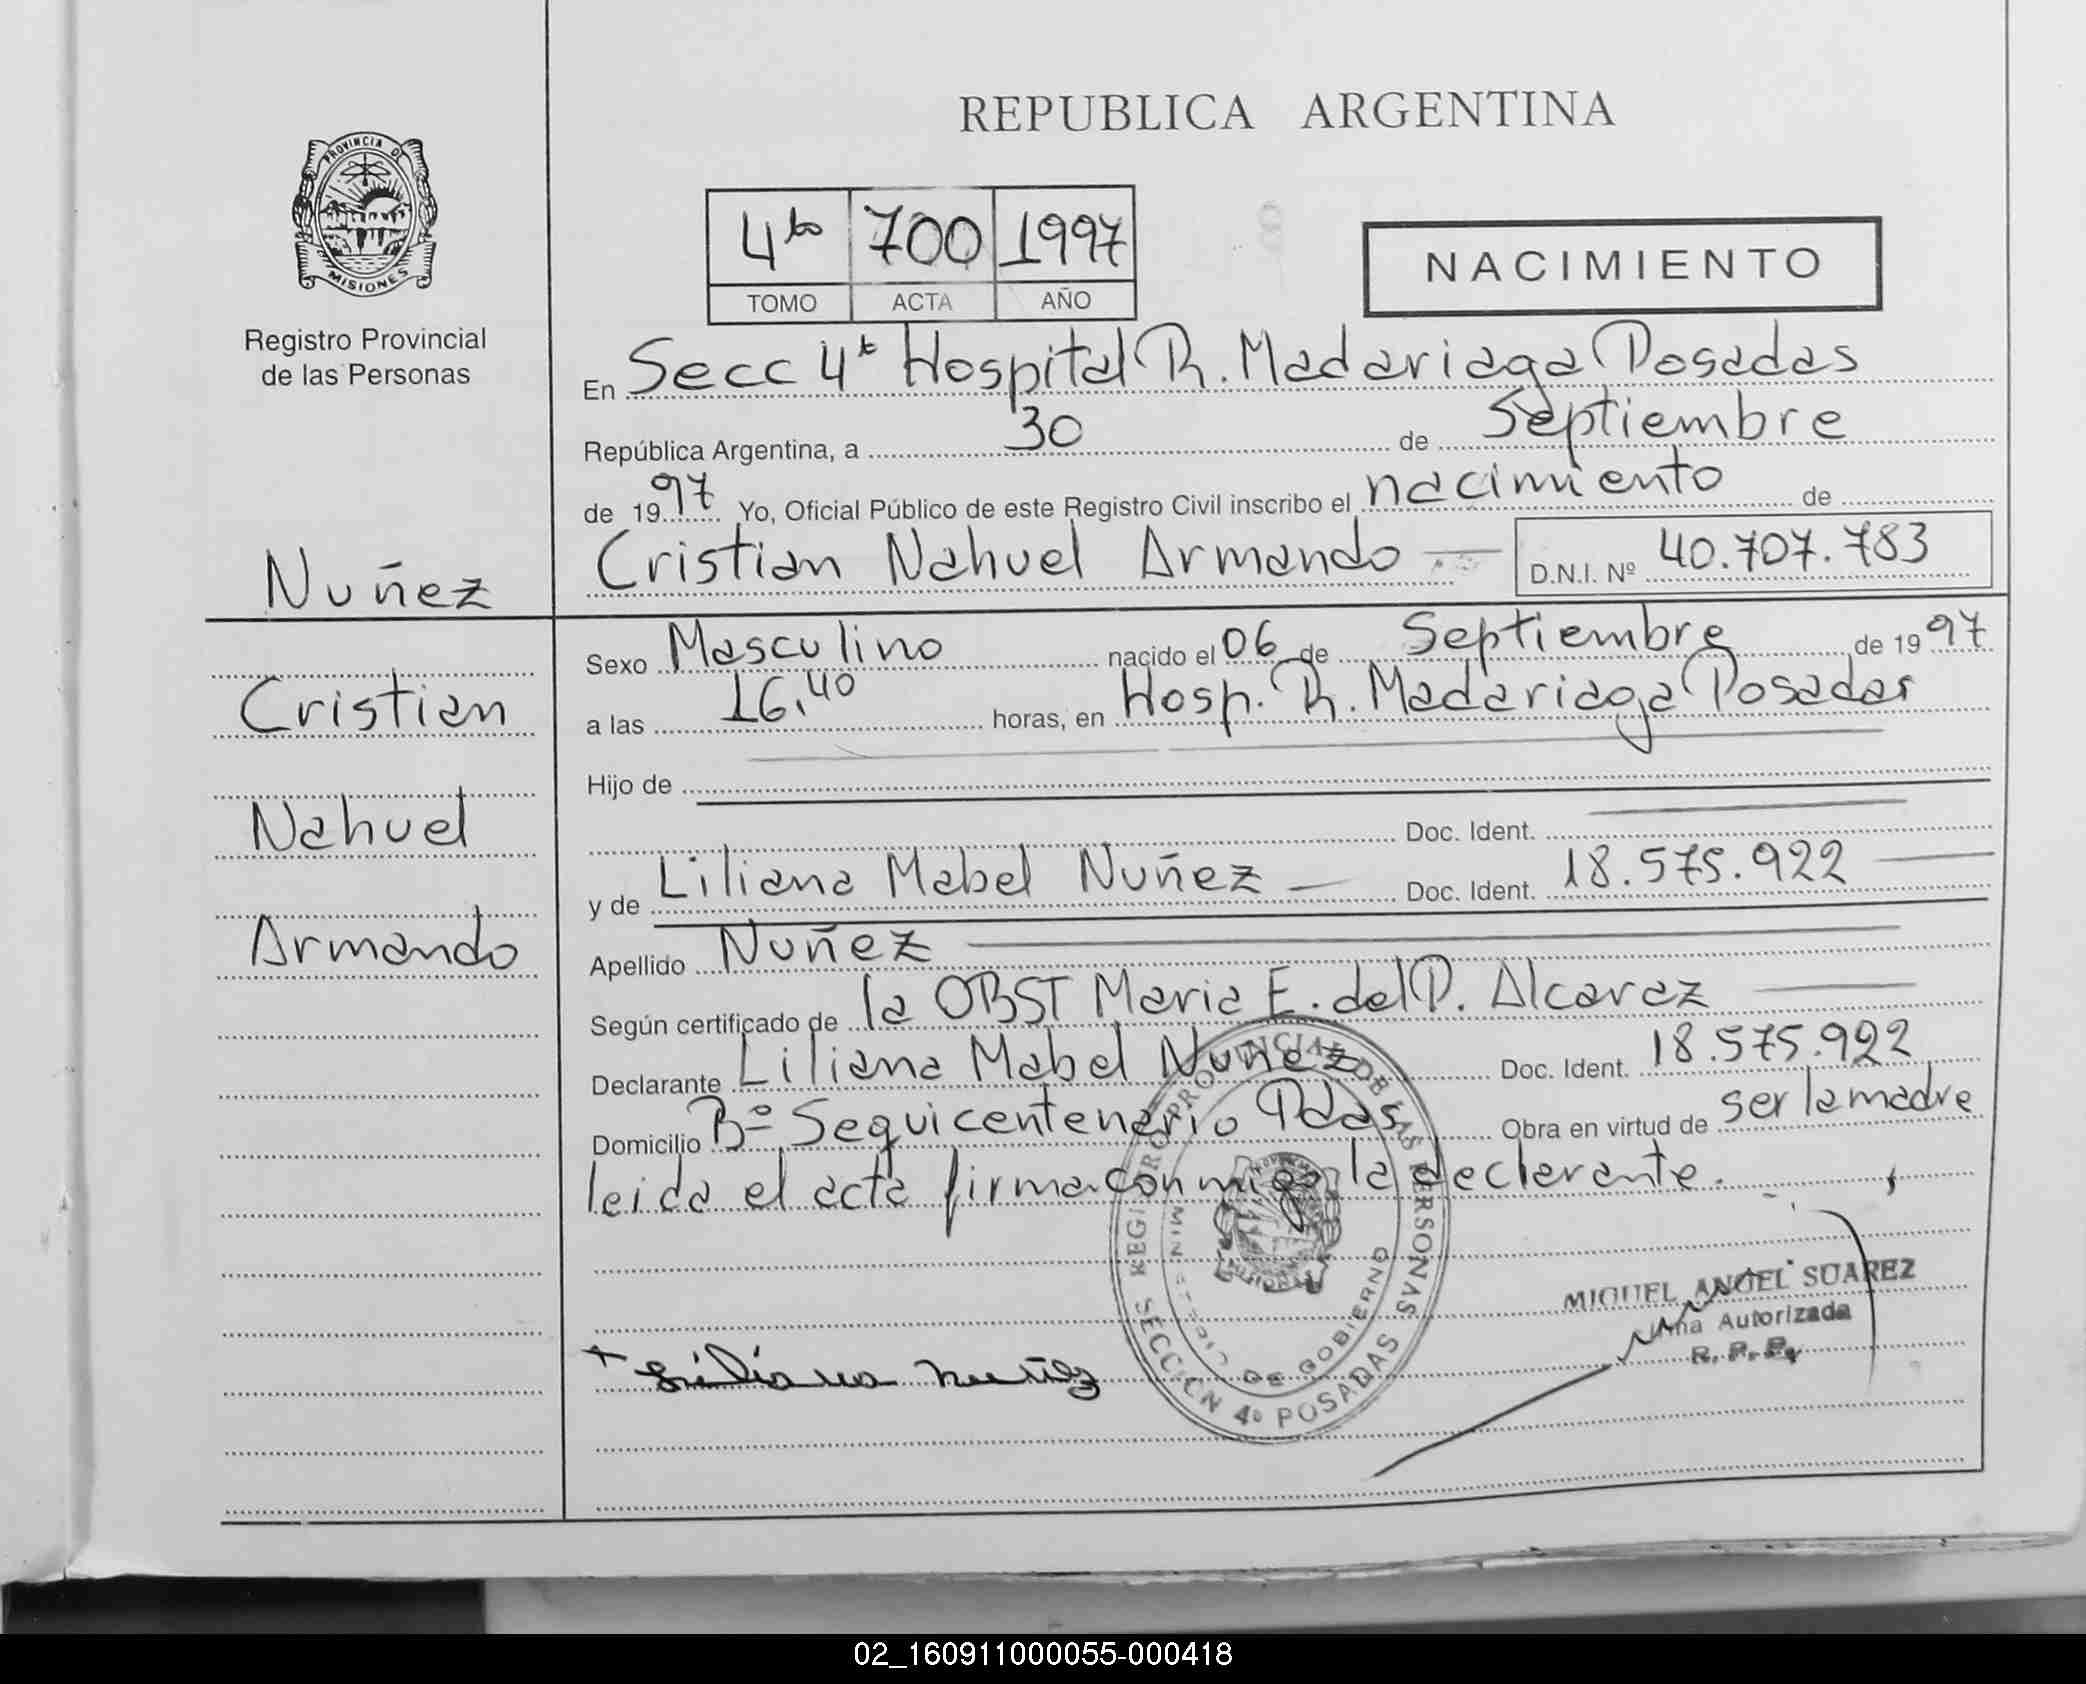 REPUBLICA ARGENTINA
PROVINCIA DE
MISIONES
Registro Provincial
de las Personas
4to 700 1997
TOMO ACTA AÑO
NACIMIENTO
En Secc 4ª Hospital R. Madariaga Posadas
República Argentina, a 30 de Septiembre
de 1997 Yo, Oficial Público de este Registro Civil inscribo el nacimiento de
Cristian Nahuel Armando D.N.I. Nº 40.707.783
Nuñez
Cristian
Nahuel
Armando
Sexo Masculino nacido el 06 de Septiembre de 1997
a las 16,40 horas, en Hosp. R. Madariaga Posadas
Hijo de
Doc. Ident.
y de Liliana Mabel Nuñez Doc. Ident. 18.575.922
Apellido Nuñez
Según certificado de la OBST Maria E. del P. Alcaraz
Declarante Liliana Mabel Nuñez Doc. Ident. 18.575.922
Domicilio Bº Sequicentenario Pdas Obra en virtud de ser la madre
leida el acta firma conmigo la declarante.
REGISTRO PROVINCIAL DE LAS PERSONAS
MINISTERIO DE GOBIERNO
SECCION 4º POSADAS
MIGUEL ANGEL SUAREZ
Firma Autorizada
R. P. P.
+ Liliana Nuñez
02_160911000055-000418